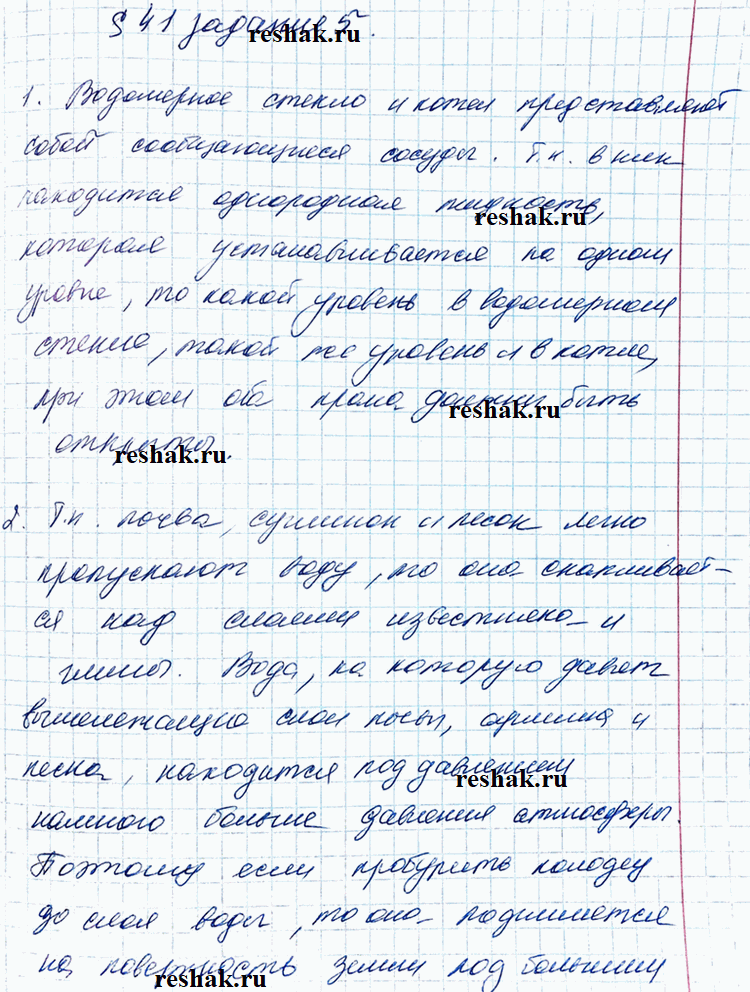 § 41 задание 5.
reshak.ru
1. Водомерное стекло и котел представляют
собой сообщающиеся сосуды. Т.к. в них
находится однородная жидкость,
reshak.ru
которая устанавливается на одном
уровне, то какой уровень в водомерном
стекле, такой же уровень и в котле,
при этом оба крана должны быть
reshak.ru
открыты.
reshak.ru
2. Т.к. почва, суглинок и песок легко
пропускают воду, то она скапливает-
ся над слоями известняка и
глины. Вода, на которую давят
вышележащие слои почвы, суглинка и
песка, находится под давлением
reshak.ru
намного больше давления атмосферы.
Поэтому если пробурить колодец
до слоя воды, то она поднимается
на поверхность земли под большим
reshak.ru